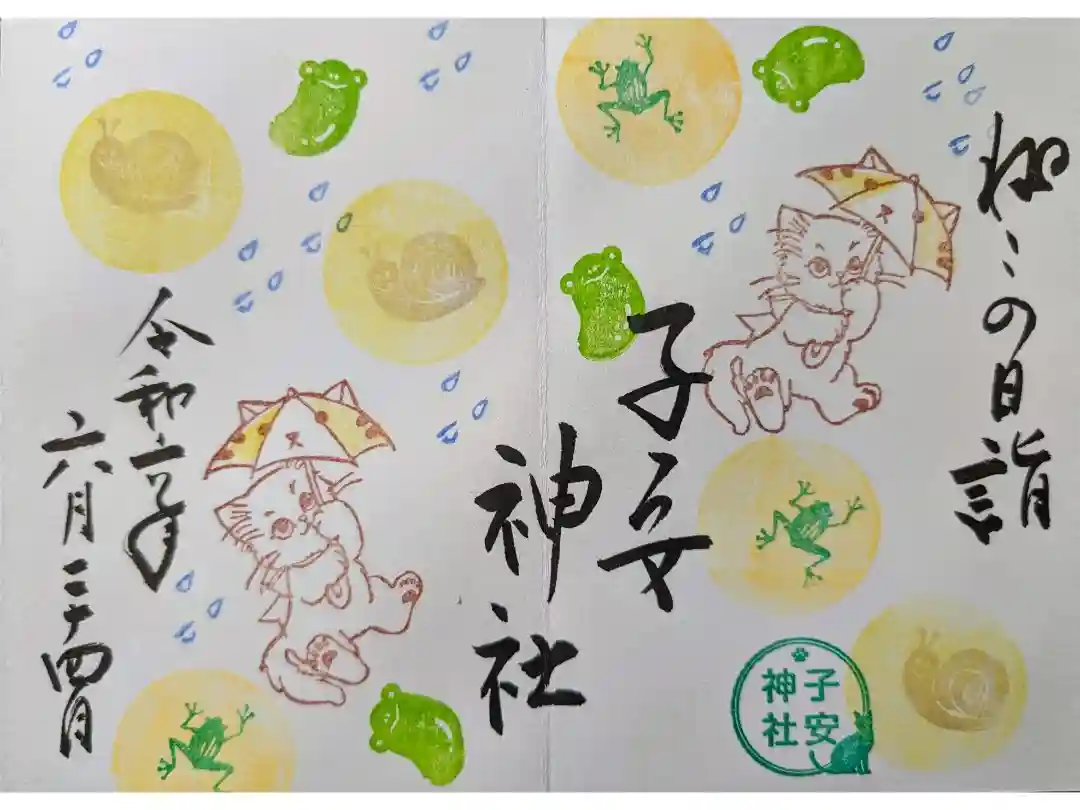 ねこの日詣
子安
神社
令和六年
六月二十四日
子安
神社